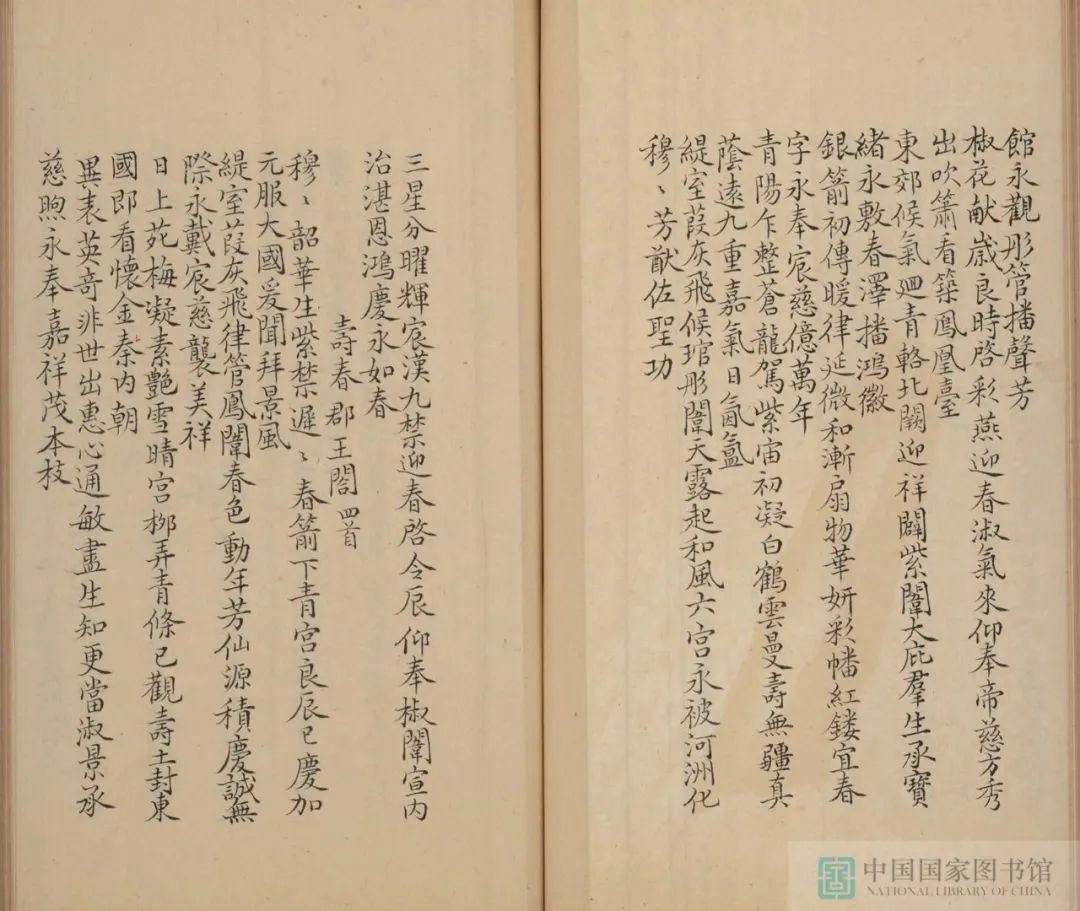 館永觀彤管播聲芳
椒花献嵗良時啓彩燕迎春淑氣來仰奉帝慈方秀
出吹簫看築鳳凰臺
東郊候氣廻青輅北闕迎祥闢紫闈大庇羣生承寶
緒永敷春澤播鴻徽
銀箭初傳暖律延微和漸扇物華妍彩幡紅鏤宜春
字永奉宸慈億萬年
青陽乍整蒼龍駕紫宙初凝白鶴雲曼壽無疆真
蔭遠九重嘉氣日氤氲
緹室葭灰飛候琯彤闈天露起和風六宮永被河洲化
穆〻芳猷佐聖功
三星分曜輝宸漢九禁迎春啓令辰仰奉椒闈宣内
治湛恩鴻慶永如春
壽春郡王閤四首
穆〻韶華生紫禁遲〻春箭下青宮良辰已慶加
元服大國爰聞拜景風
緹室葭灰飛律管鳳闈春色動年芳仙源積慶誠無
際永戴宸慈襲美祥
日上苑梅凝素艷雪晴宮栁弄青條已觀壽土封東
國即看懷金奏内朝
異表英竒非世出惠心通敏盡生知更當淑景承
慈煦永奉嘉祥茂本枝
中国国家图书馆
NATIONAL LIBRARY OF CHINA